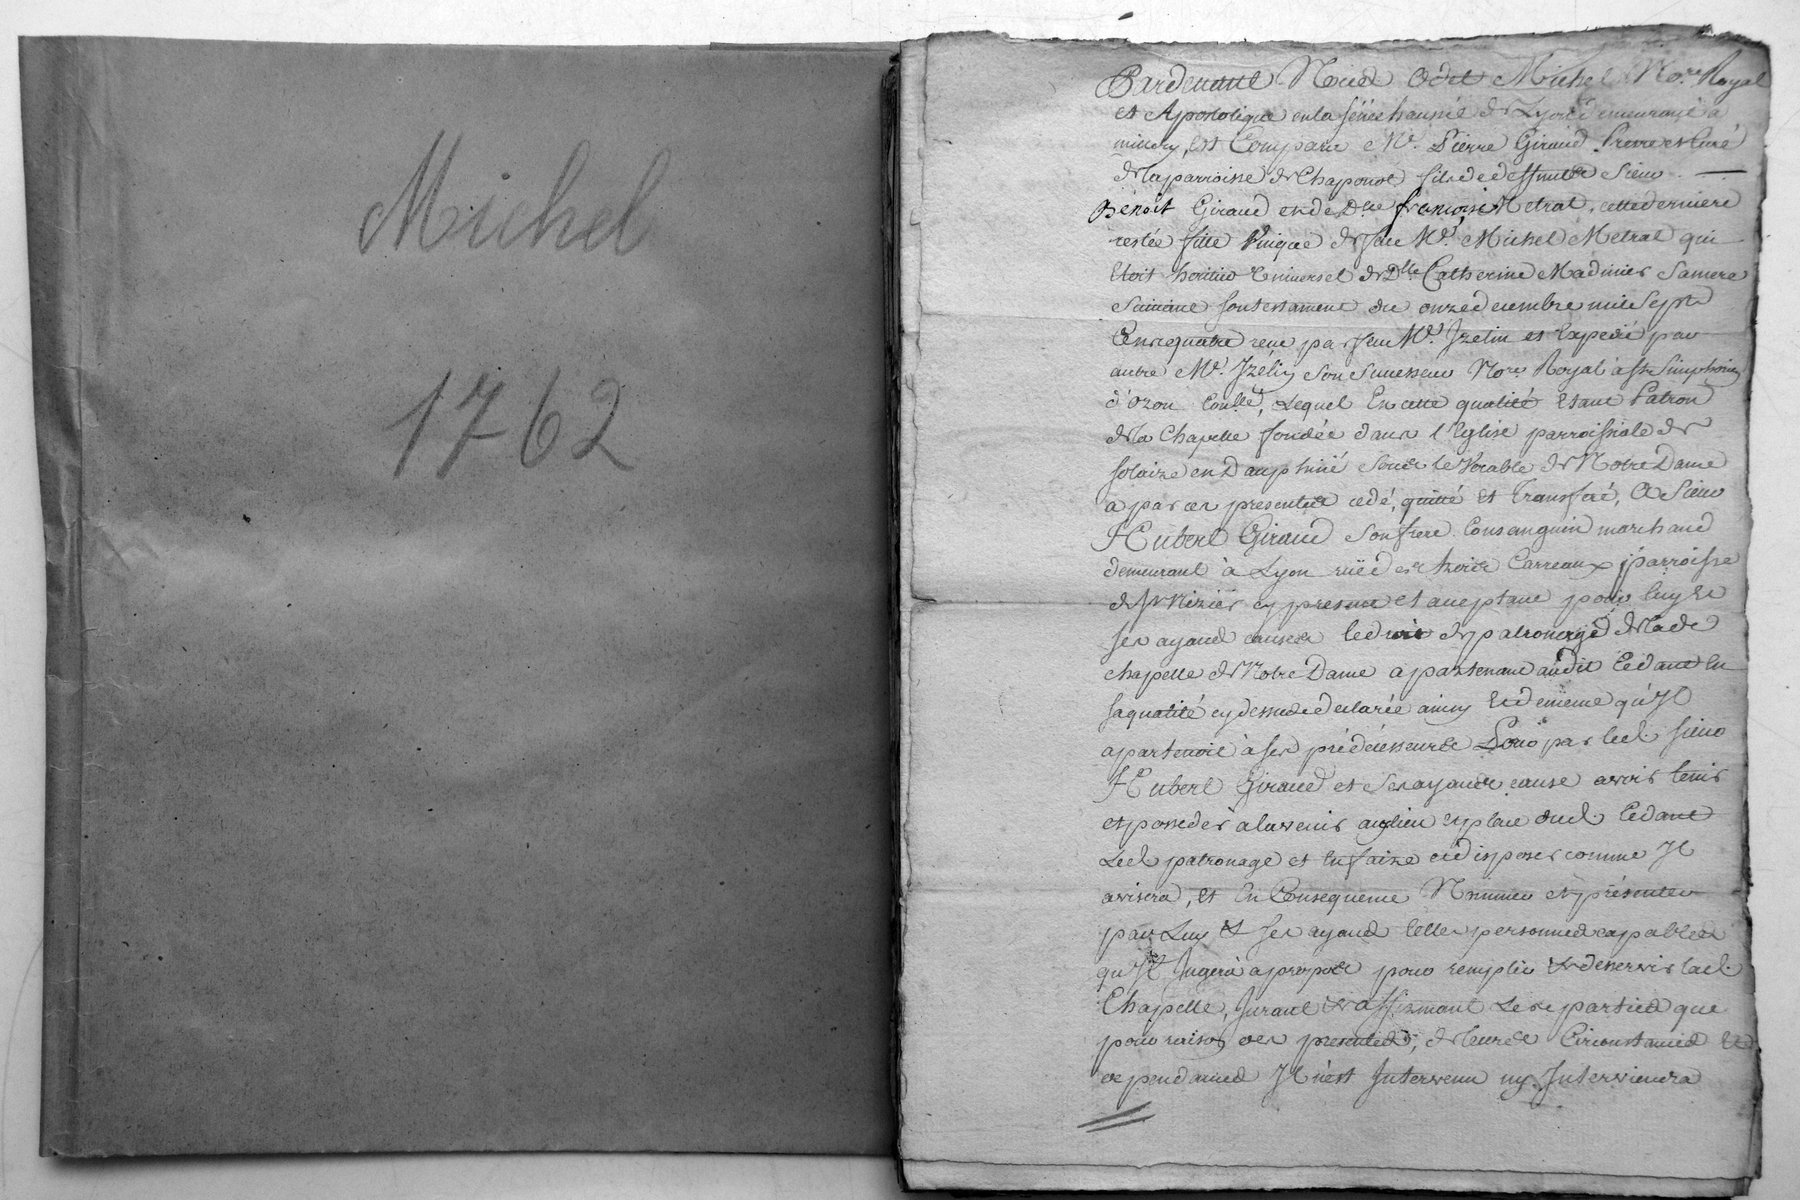 Michel
1762
Pardevant Noel Odet Michel Nore. Royal
et Apostolique en la sénéchaussée de Lyon demeurant à
millery, est Comparu Mr. Pierre Giraud Prêtre et Curé
de la parroisse de Chaponost fils de deffunt Sieur
Bénoit Giraud et de Dlle françoise Metrat, cette derniere
restée fille Unique de feu Mr. Michel Metral qui
Etoit heritier Universel de Dlle Catherine Madinier Sa mere
Suivant son testament du onze decembre mil Sept
Cens quatre recu par feu Mr. Izelin et Expedié par
autre Mr. Izélin Son Sucesseur Nore. Royal à St Simphorien
d'ozon Conlle., Lequel En cette qualité Etant Patron
de la Chapelle fondée dans l'Eglise parroissiale de
solaize en Dauphiné Sous le Vocable de Notre Dame
a par ces presentes cedé, quitté et transferé, A Sieur
Hubert Giraud Son frere Consanguin marchand
demeurant à Lyon ruë des trois Carreaux parroisse
de St Nizier cy present et aceptant pour luy et
ses ayand causes le droit de patronage de lade
chapelle de Notre Dame apartenant audit Cedant En
sa qualité cy dessus declarée ainsy Et de même qu'Il
apartenoit à ses prédécesseurs Pour par led. sieur
Hubert Giraud et Ses ayands cause avoir tenir
et posseder à lavenir au lieu et place dud. Cedant
Led patronage et En faire et disposer comme Il
avisera, et En Consequence Nommer et présenter
par Luy et ses ayand telles personnes capables
qu'Il Jugera apropos pour remplir et desservir lad.
Chapelle, Jurant et affirmant Lesd parties que
pour raison des presentes, de leurs Circonstances et
dependances Il n'est Intervenu ny Interviendra